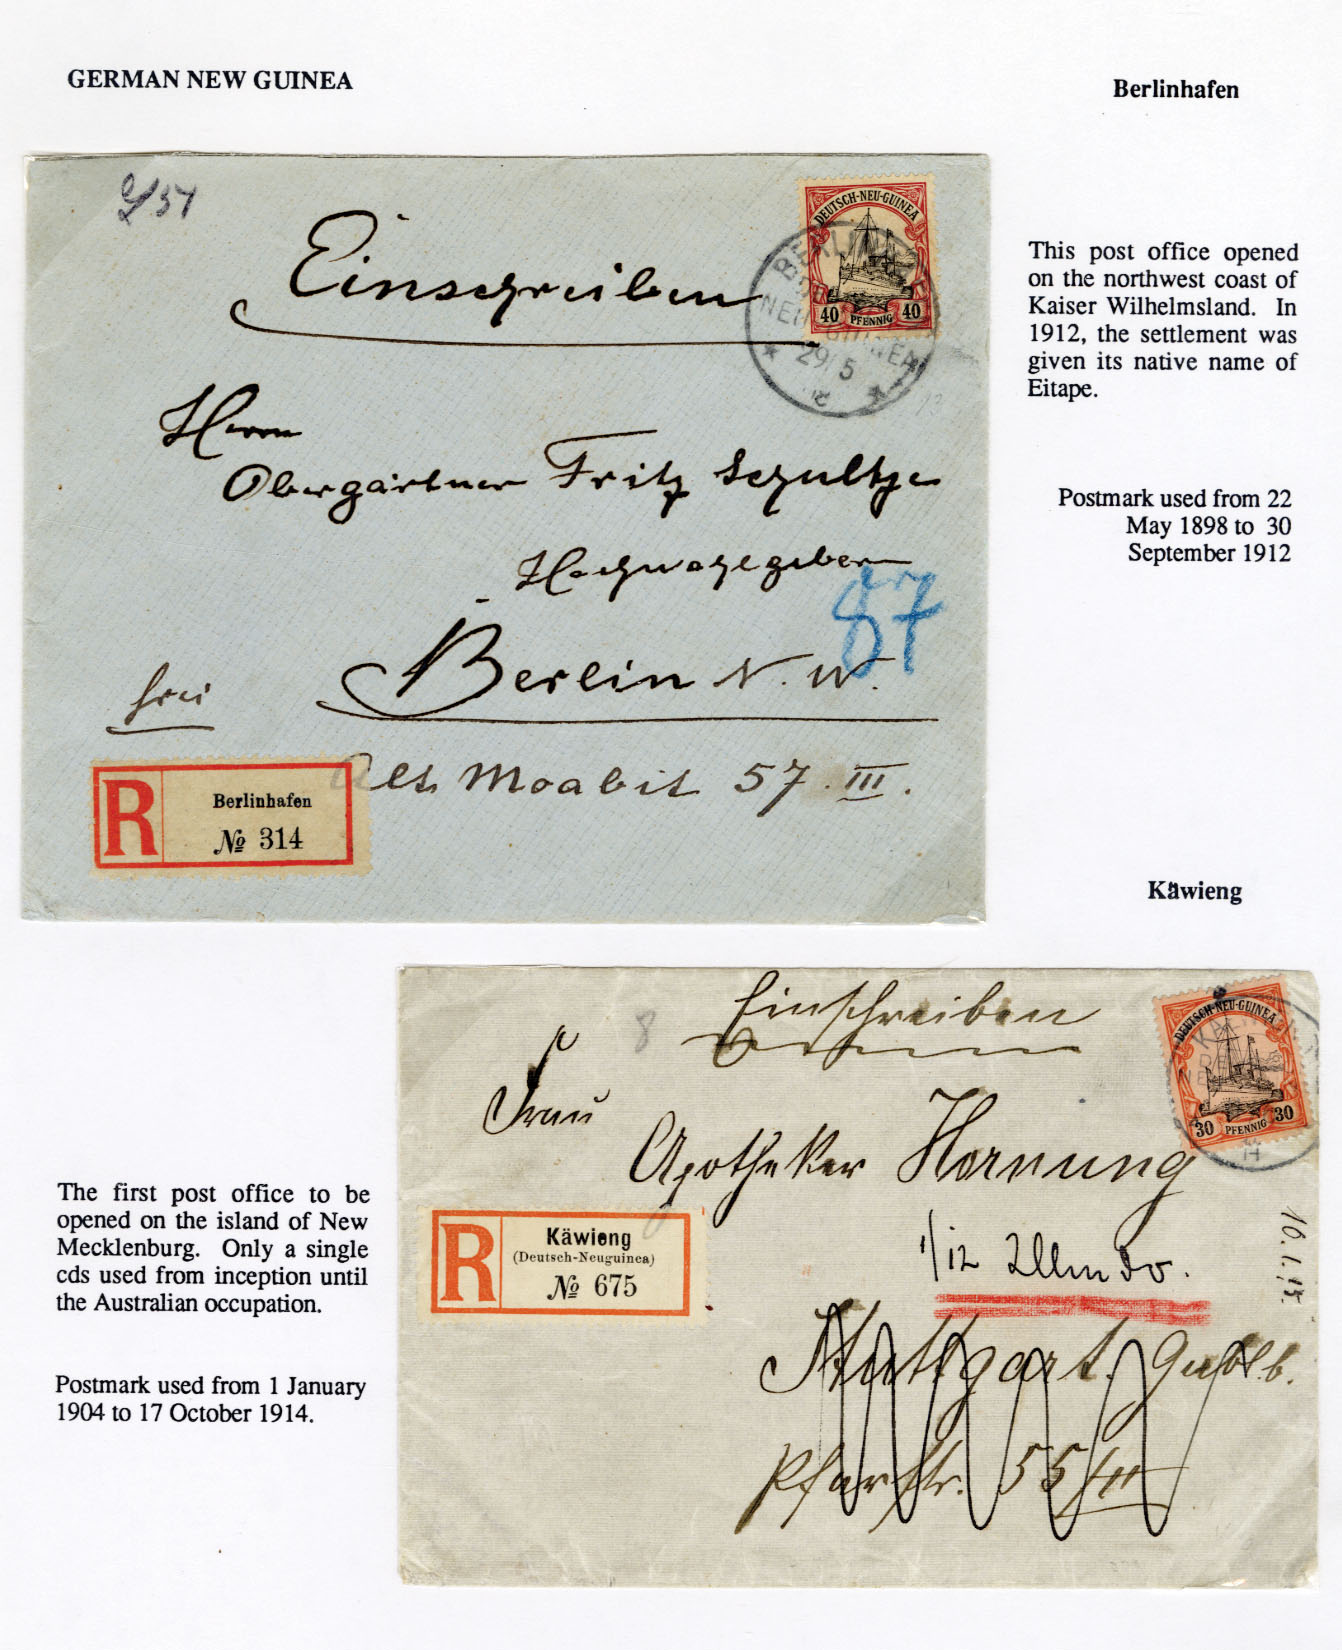 GERMAN NEW GUINEA
Berlinhafen
Einschreiben
DEUTSCH-NEU-GUINEA
40 PFENNIG 40
29/5
Herrn
Obergärtner Fritz Schultze
Hochwohlgeboren
87
Berlin N. W.
frei
Alt Moabit 57. III.
R
Berlinhafen
№ 314
This post office opened
on the northwest coast of
Kaiser Wilhelmsland. In
1912, the settlement was
given its native name of
Eitape.
Postmark used from 22
May 1898 to 30
September 1912
Käwieng
Einschreiben
8
DEUTSCH-NEU-GUINEA
30 PFENNIG 30
Frau
Apotheker Hornung
R
Käwieng
(Deutsch-Neuguinea)
№ 675
16.1.15.
Stuttgart.
Pfarrstr. 55
The first post office to be
opened on the island of New
Mecklenburg. Only a single
cds used from inception until
the Australian occupation.
Postmark used from 1 January
1904 to 17 October 1914.